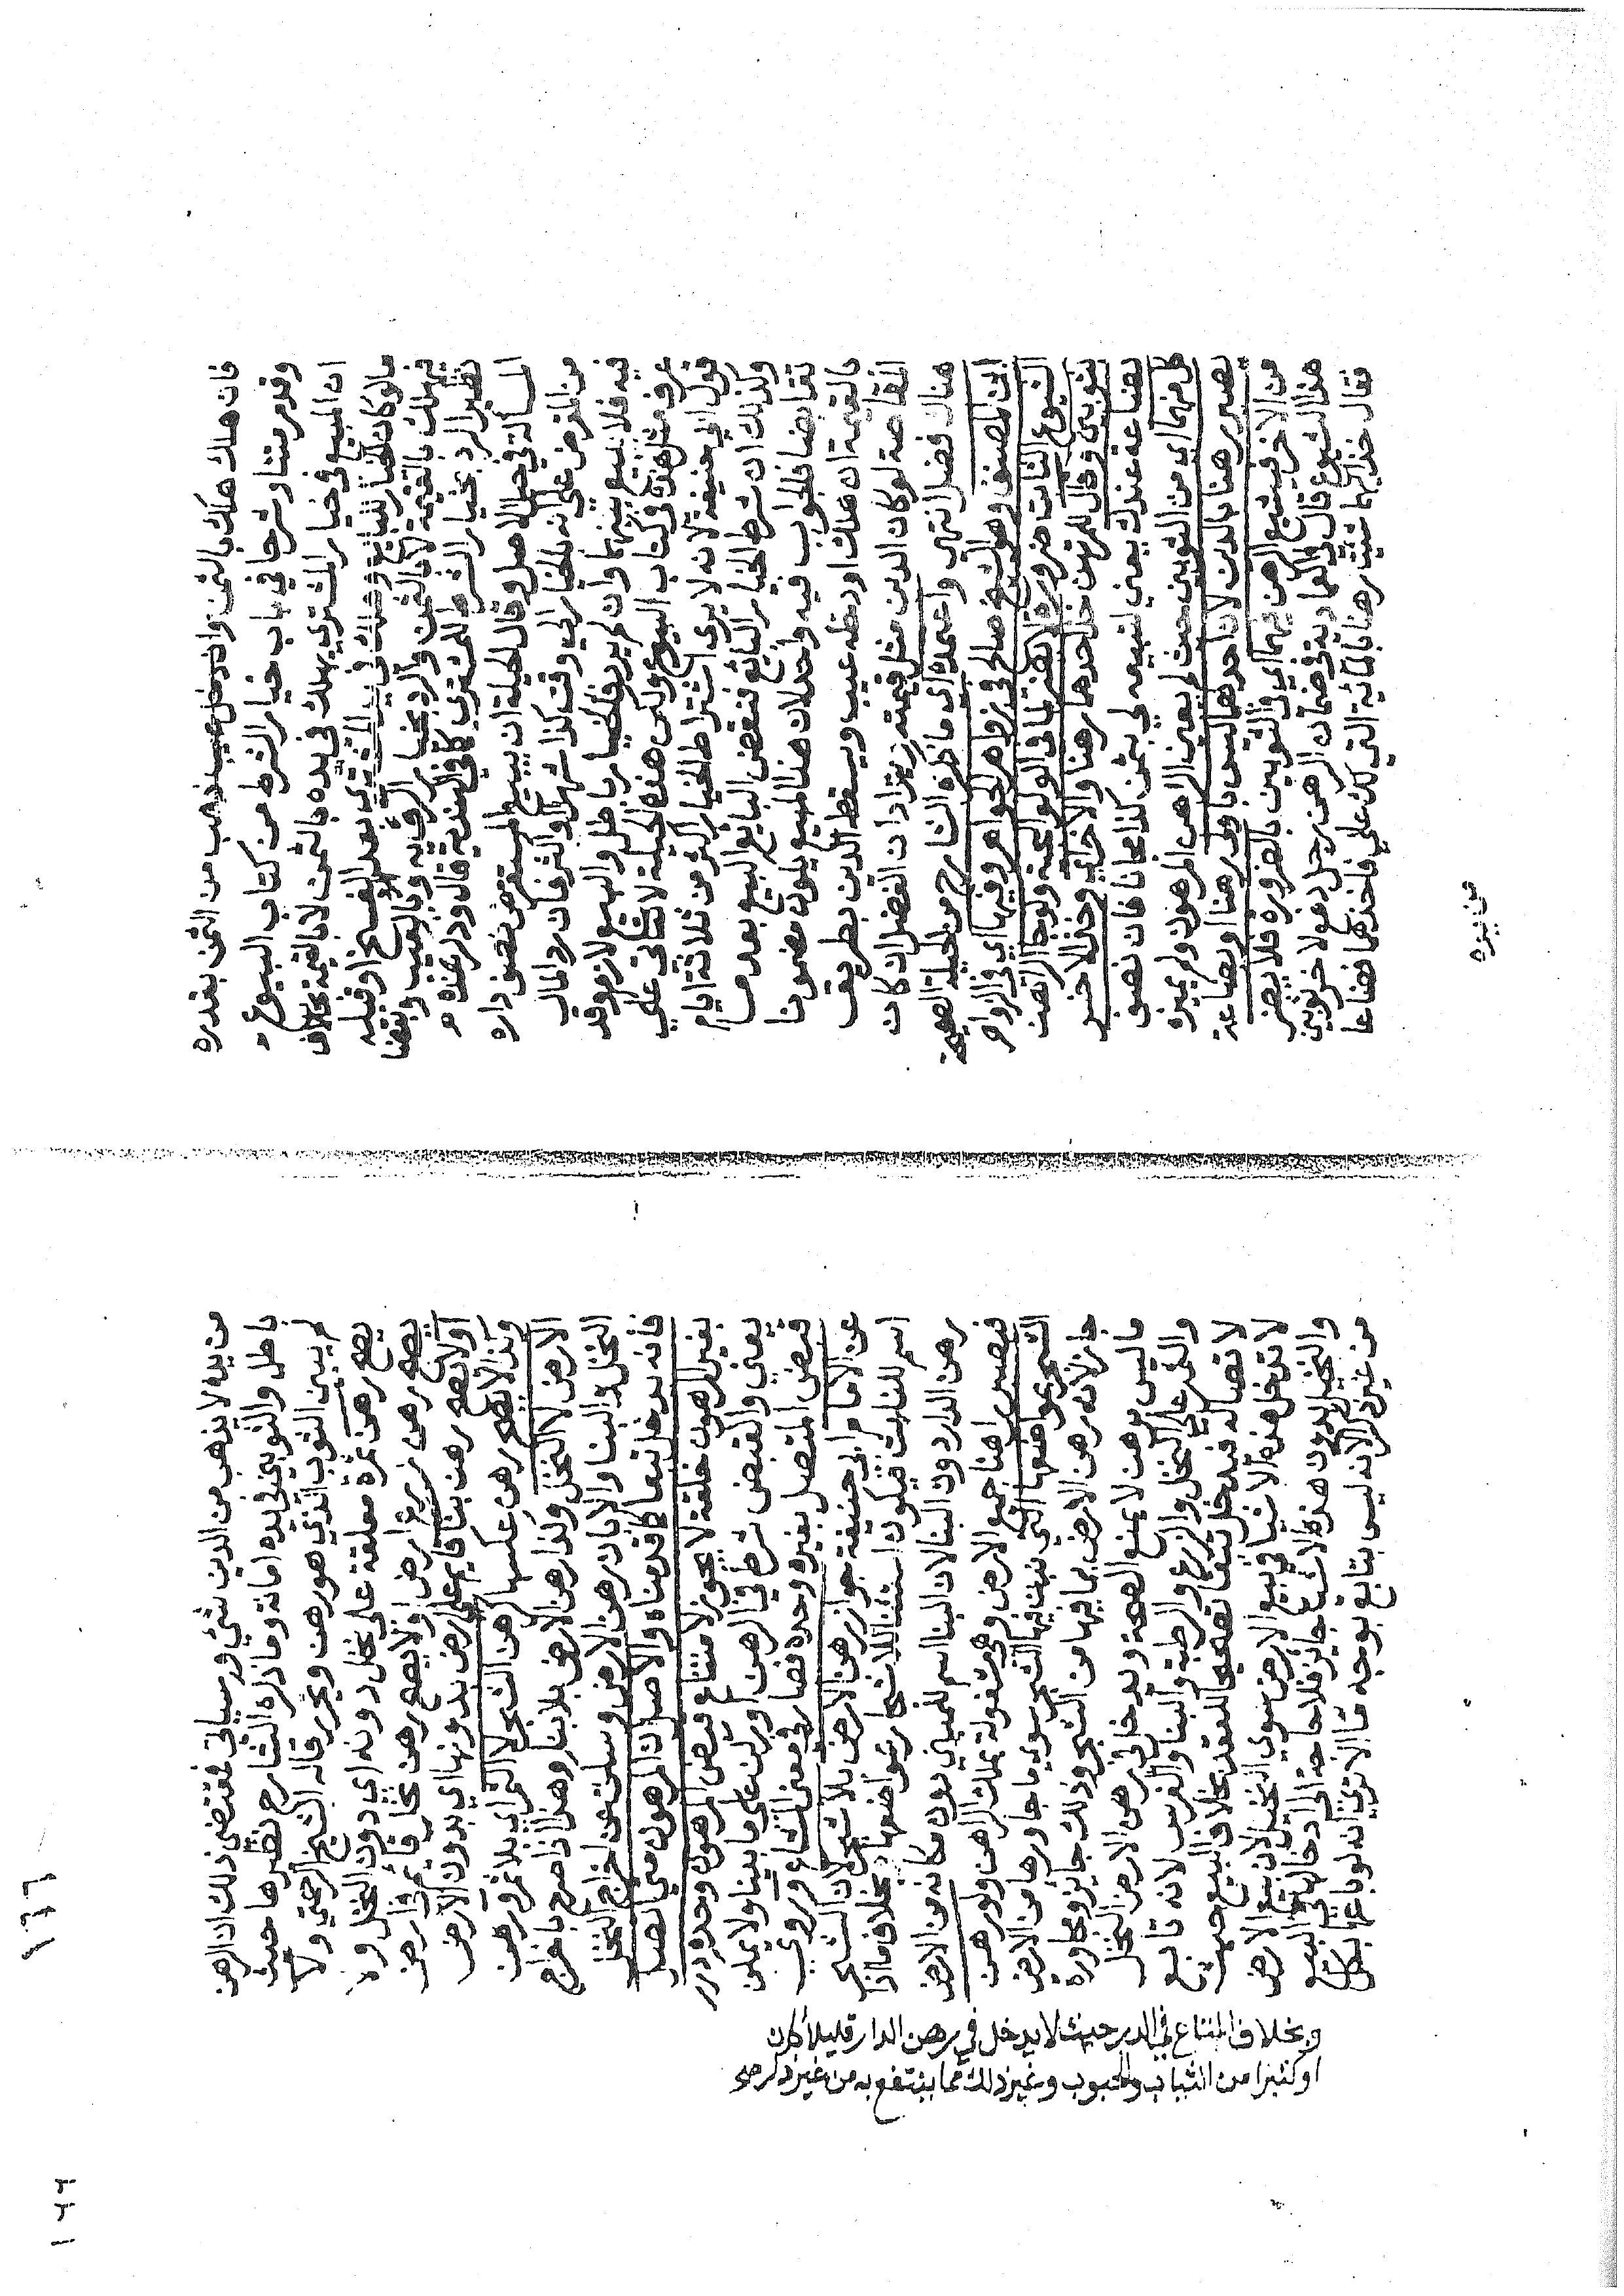 فان هلك هلك بالثمن وان دخل عيب ذهب من الثمن بقدره
وقد مر متنا وشرحا في باب خيار الشرط من كتاب البيوع
ان المبيع في خيار المشتري يهلك في يده بالثمن لا بالقيمة بخلاف
ما لو كان الخيار للبايع وهلك في يد المشتري بعد الفسخ او قبله
فيهلك بالقيمة لا بالثمن والرد بخيار الروية وبالعيب وبقضا
نظير الرد بخيار الشرط للمشتري كما في الهندية قال هذه
المسألة في حيل الاصل وقال الحيلة ان يبيع المستقرض نصف داره
من المقرض على انه بالخيار الى وقت كذا شهرا او اكثر فان رد المال
فيه فلا بيع بينهما وان لم يرد فالخيار باطل والبيع لازم وقد
عرف مثل هذه في كتاب البيوع ولكن هذه الحيلة لا تتأتى على
قول ابي حنيفة لانه لا يرى اشتراط الخيار اكثر من ثلاثة ايام
وكذلك ان شرط الخيار للبائع فنقض البايع البيع بعد ما
تقابضا فالجواب فيه واحد لان هذا المبيع يكون مضمونا
بالقيمة ان هلك او دخله عيب ويسقط الدين بطريق
المقاصة لو كان الدين مثل قيمته ويترادان الفضل ان كان
هناك فضل انتهى واعتمده اي ما ذكره الشارح من الحيلة الصحيحة
ابن المصنف وهو الشيخ صالح في زواهر الجواهر وفيها اي في الزواهر
الشيوع الثابت ضرورة لا يضر لما في الولوالجية ولو جا الراهن
بثوبين وقال للمرتهن خذ احدهما رهنا والاخر اي وخذ الاخر
بضاعة عندك يعني لتبيعه لي بثمن كذا مجانا فان نصف
كل منهما اي من الثوبين حيث لم يعين الراهن المرهون ولم يميزه
يصير رهنا بالدين لان احدهما ليس باولى رهنا او بضاعة
من الاخر فيشيع الرهن فيهما اي في الثوبين بالضرورة فلا يضر
هذا الشيوع قال في العمادية في ضمان الرهن رجل دفع لاخر ثوبين
فقال خذ ايهما شئت رهنا بالمائة التي لك علي فاخذهما فضاعا
من يده
من يده لا يذهب من الدين شي وسياتي مقتضى ذلك ان الرهن
باطل والثوبين في يده امانة وما ذكره الشارح نظيرها حيث
لم يبين الثوب الذي هو رهن ويحرر قاله الشيخ الرحمتي ولا
يصح رهن ثمرة معلقة على نخل دونه اي دون النخل ولا
يصح رهن زرع ارض او لا يصح رهن نخل قايم في ارض
او لا يصح رهن بنا قايم على ارض بدونها اي بدون الارض
وكذا لا يصح رهن عكسها كرهن الشجر لا الثمر اي بلا ثمر ورهن
الارض لا النخل وكذا رهن الارض بلا بنا وهذا اذا صرح باخراج
النخل والبنا والا بان رهن الارض وسكت عن اخراج النخل
فانه يدخل تبعا كما قدمناه والاصل ان المرهون متى اتصل
بغير المرهون خلقة لا يجوز لامتناع قبض المرهون وحده درر
يعني والقبض شرط في الرهن او ركن على ما بينا ولا يمكن
قبض المتصل بغيره وحده فصار في معنى المشاع وروي
عن الامام ابي حنيفة جواز رهن الارض بلا شجر لان الشجر
اسم للنابت فيكون استثناء للاشجار بمواضعها بخلاف ما اذا
رهن الدار دون البنا لان البنا اسم للمبني دون مكانه من الارض
فيصير راهنا جميع الارض وهي مشغولة بملك الراهن ولو رهن
الشجر بمواضعها التي نبت فيها الشجر سوى ما جاورها من الارض
جاز لانه رهن الارض بما فيها من الشجر وذلك جايز ومجاورة
ما ليس برهن لا يمنع الصحة ويدخل في رهن الارض النخل
والثمر على النخل والزرع والرطبة والبنا والغرس لانه تابع
لاتصاله فيدخل تبعا تصحيحا للعقد بخلاف البيع حيث
لا تدخل هذه الاشيا في بيع الارض سوى النخيل لان بيع الارض
والنخيل بدون هذه الاشيا جايز فلا حاجة الى ادخالها في البيع
من غير ذكر لانه ليس بتابع بوجه ما الا ترى انه لو باع
وبخلاف المتاع في الدار حيث لا يدخل في رهن الدار قليلا كان
او كثيرا من الثياب والحبوب وغير ذلك مما ينتفع به من غير ذكر صح
١٦٦
١٦٦